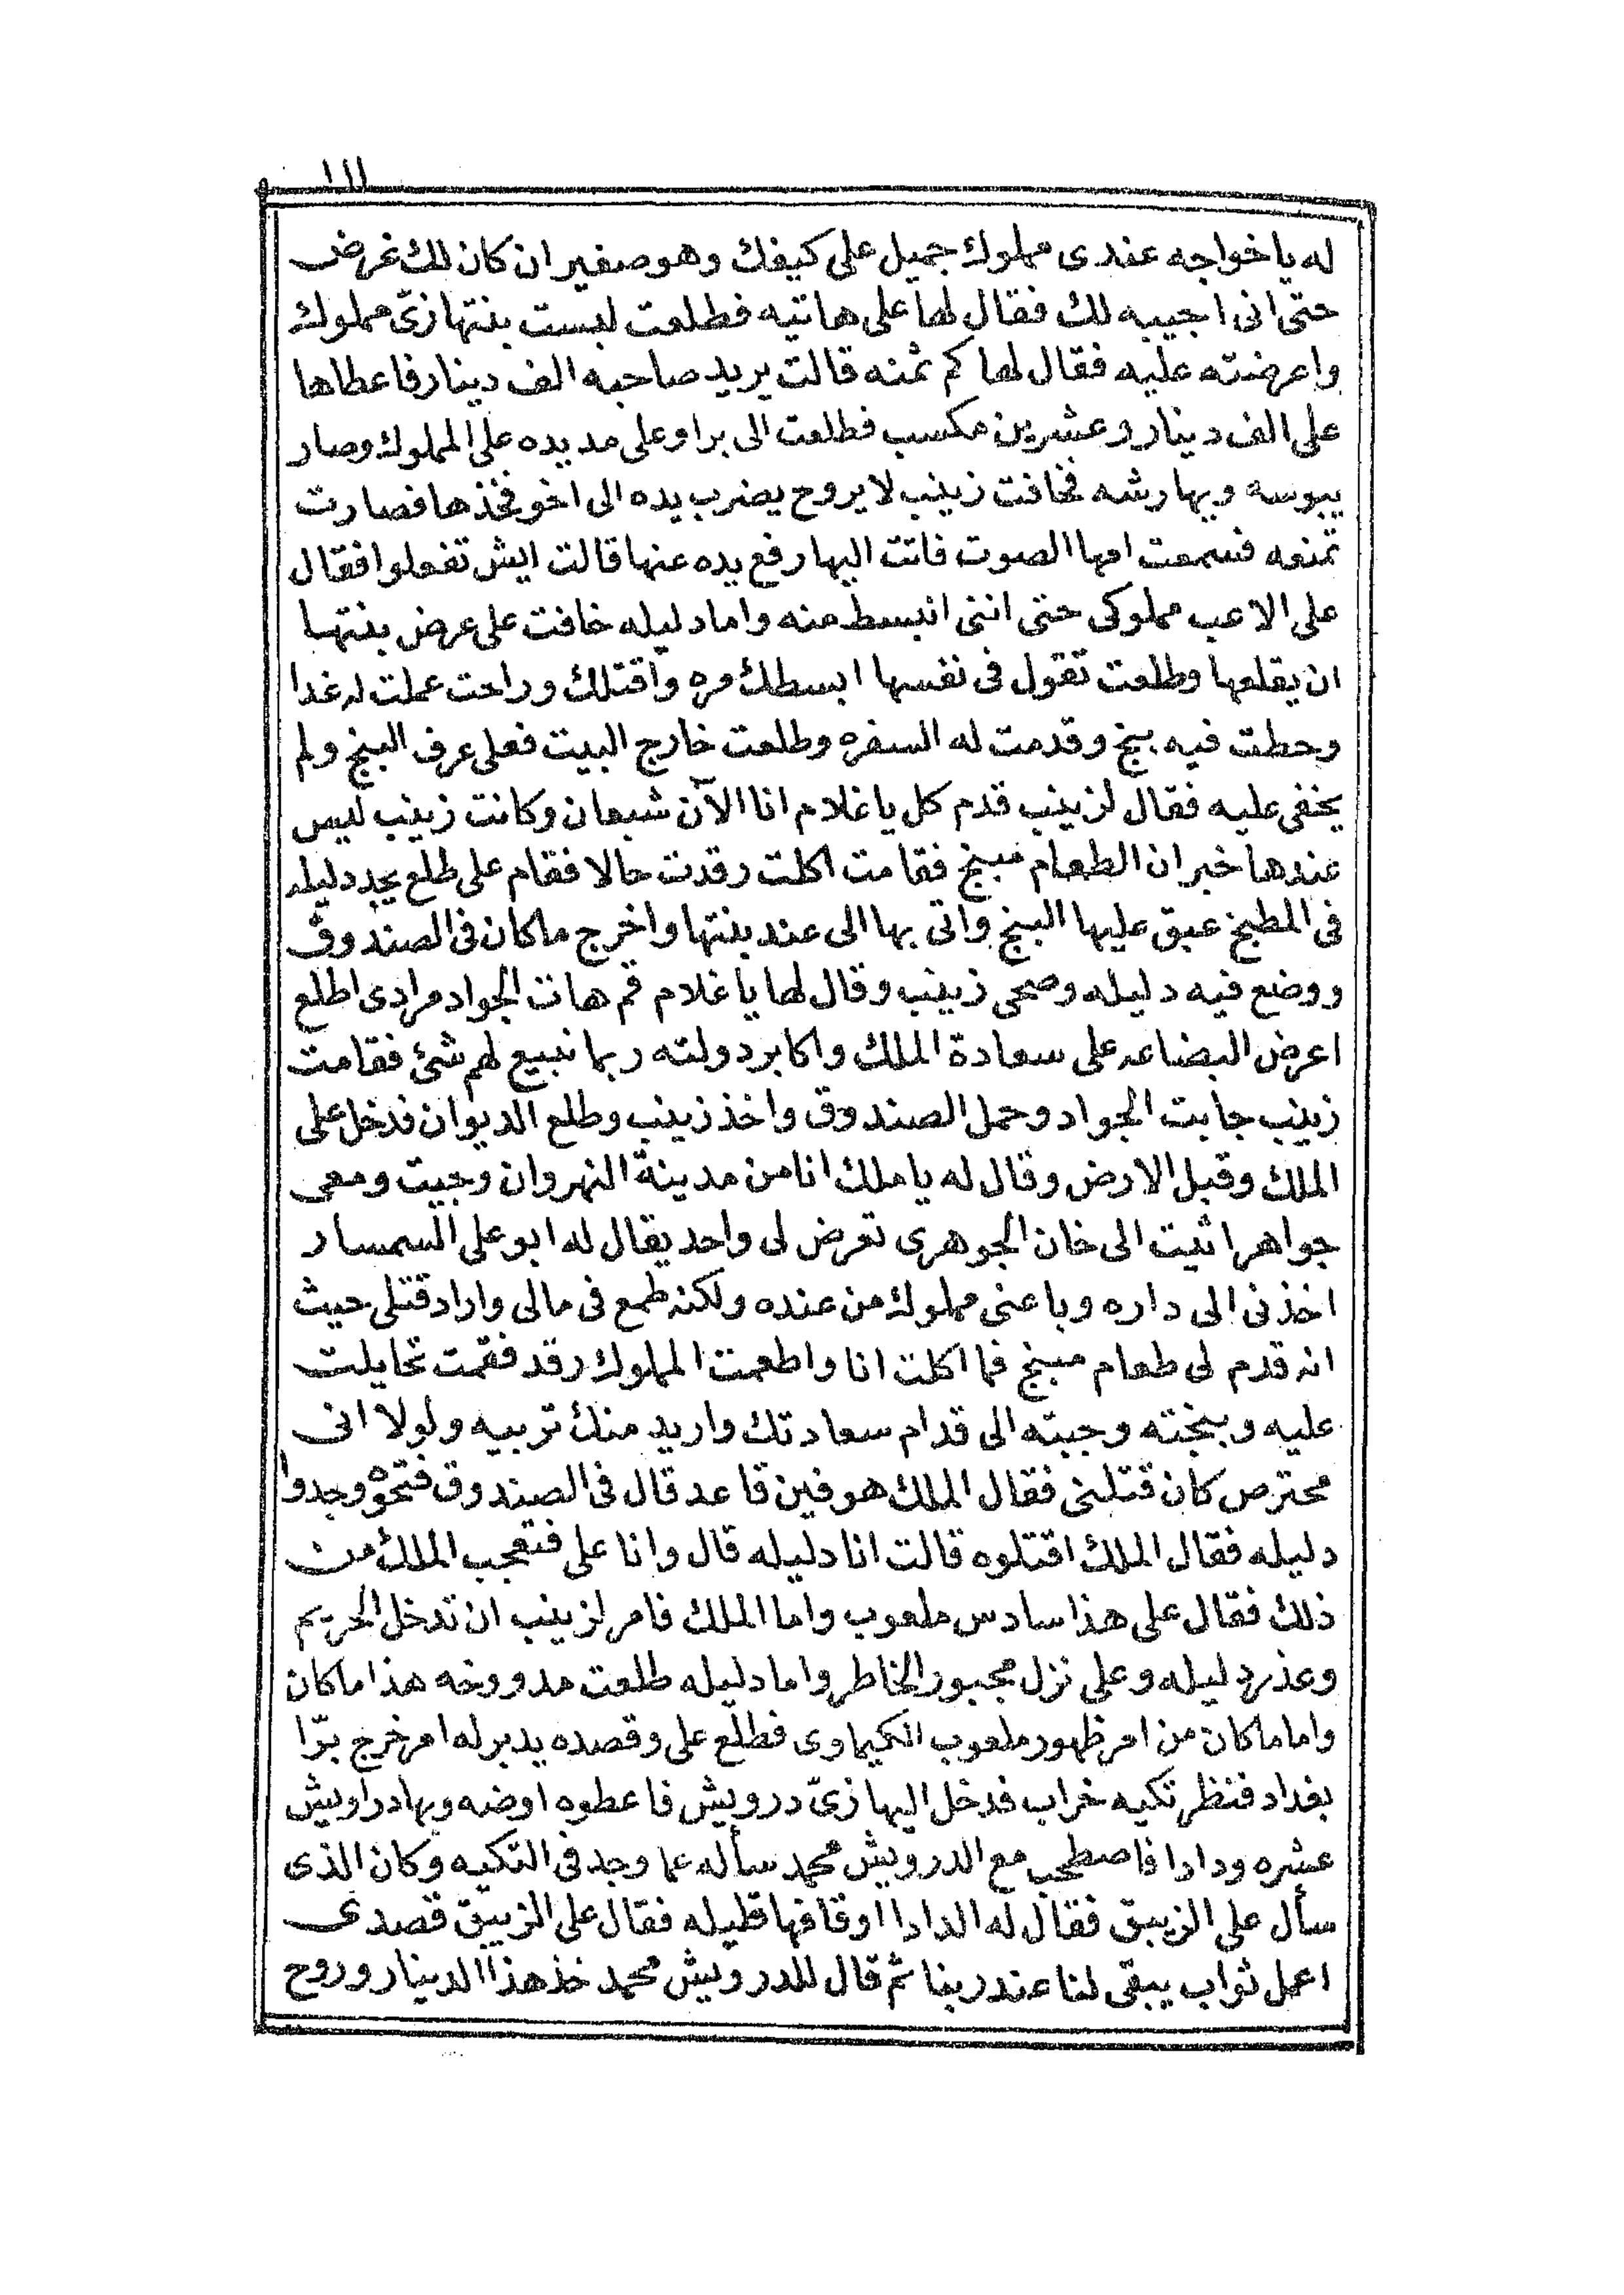 ١١١
له يا خواجه عندى مملوك جميل على كيفك وهو صغير ان كان لك غرض
حتى انى اجيبه لك فقال لها على هاتيه فطلعت لبست بنتها زىّ مملوك
واعرضته عليه فقال لها كم ثمنه قالت يريد صاحبه الف دينار فاعطاها
على الف دينار وعشرين مكسب فطلعت الى برا وعلى مد يده على المملوك وصار
يبوسه ويهارشه فخافت زينب لا يروح يضرب يده الى اخو فخذها فصارت
تمنعه فسمعت امها الصوت فاتت اليها رفع يده عنها قالت ايش تفعلوا فقال
على الاعب مملوكى حتى اننى انبسط منه واما دليله خافت على عرض بنتها
ان يقلعها وطلعت تقول فى نفسها ابسطك مره واقتلك وراحت عملت له غدا
وحطت فيه بنج وقدمت له السفره وطلعت خارج البيت فعلى عرف البنج ولم
يخفى عليه فقال لزينب قدم كل يا غلام انا الآن شبعان وكانت زينب ليس
عندها خبر ان الطعام مبنج فقامت اكلت رقدت حالا فقام على طلع يجد دليله
فى المطبخ عبق عليها البنج واتى بها الى عند بنتها واخرج ما كان فى الصندوق
ووضع فيه دليله وصحى زينب وقال لها يا غلام قم هات الجواد مرادى اطلع
اعرض البضاعه على سعادة الملك واكابر دولته ربما نبيع لهم شئ فقامت
زينب جابت الجواد وحمل الصندوق واخذ زينب وطلع الديوان فدخل على
الملك وقبل الارض وقال له يا ملك انا من مدينة النهروان وجيت ومعى
جواهر اتيت الى خان الجوهرى تعرض لى واحد يقال له ابو على السمسار
اخذنى الى داره وباعنى مملوك من عنده ولكنه طمع فى مالى واراد قتلى حيث
انه قدم لى طعام مبنج فما اكلت انا واطعمت المملوك رقد فقمت تحايلت
عليه وبنجته وجبته الى قدام سعادتك واريد منك تربيه ولولا انى
محترص كان قتلنى فقال الملك هو فين قاعد قال فى الصندوق فتحوه وجدوا
دليله فقال الملك اقتلوه قالت انا دليله قال وانا على فتعجب الملك من
ذلك فقال على هذا سادس ملعوب واما الملك فامر لزينب ان تدخل الحريم
وعذر دليله وعلى نزل مجبور الخاطر واما دليله طلعت مدووخه هذا ما كان
واما ما كان من امر ظهور ملعوب الكيماوى فطلع على وقصده يدبر له امر خرج برّا
بغداد فنظر تكيه خراب فدخل اليها زىّ درويش فاعطوه اوضه وبها دراويش
عشره ودادا فاصطحب مع الدرويش محمد سأله عما وجد فى التكيه وكان الذى
سأل على الزيبق فقال له الدادا اوقافها قليله فقال على الزيبق قصدى
اعمل ثواب يبقى لنا عند ربنا ثم قال للدرويش محمد خذ هذا الدينار وروح